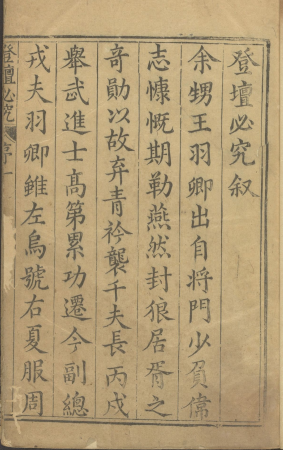 登壇必究叙
余甥王羽卿出自将門少負偉
志慷慨期勒燕然封狼居胥之
竒勛以故弃青衿襲千夫長丙戍
舉武進士髙第累功遷今副總
戎夫羽卿雖左烏號右夏服周
登壇必究
序一